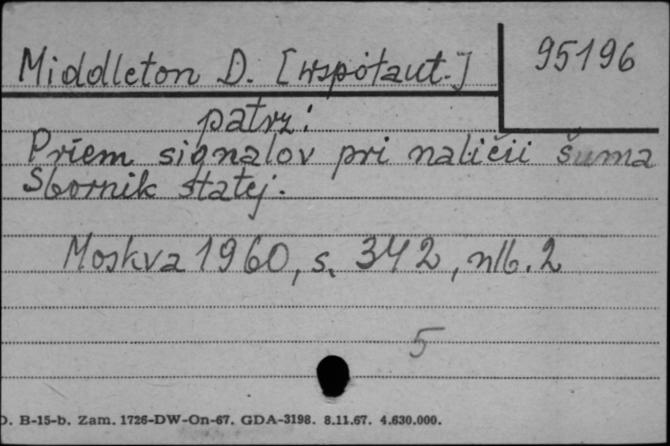 Middleton D. [współaut.]
95196
patrz:
Priem signalov pri naličii šuma
Sbornik statej.
Moskva 1960, s. 342, nlb. 2
5
D. B-15-b. Zam. 1726-DW-On-67. GDA-3198. 8.11.67. 4.630.000.